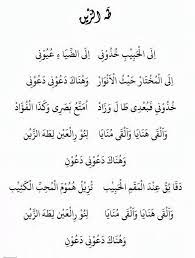 طه الزين
إلى الحبيب خذوني إلى الضياء عبوني
إلى المختار حيث الأنوار وهناك دعوني دعوني
خذوني فبعدي طال وزاد أمتع بصري وكذا الفؤاد
وألقى هنايا وألقى منايا لنور العين لطه الزين
وهناك دعوني دعوني
دقائق عند المقام الحبيب تزيل هموم المحب الكئيب
وألقى هنايا وألقى منايا لنور العين لطه الزين
وهناك دعوني دعون